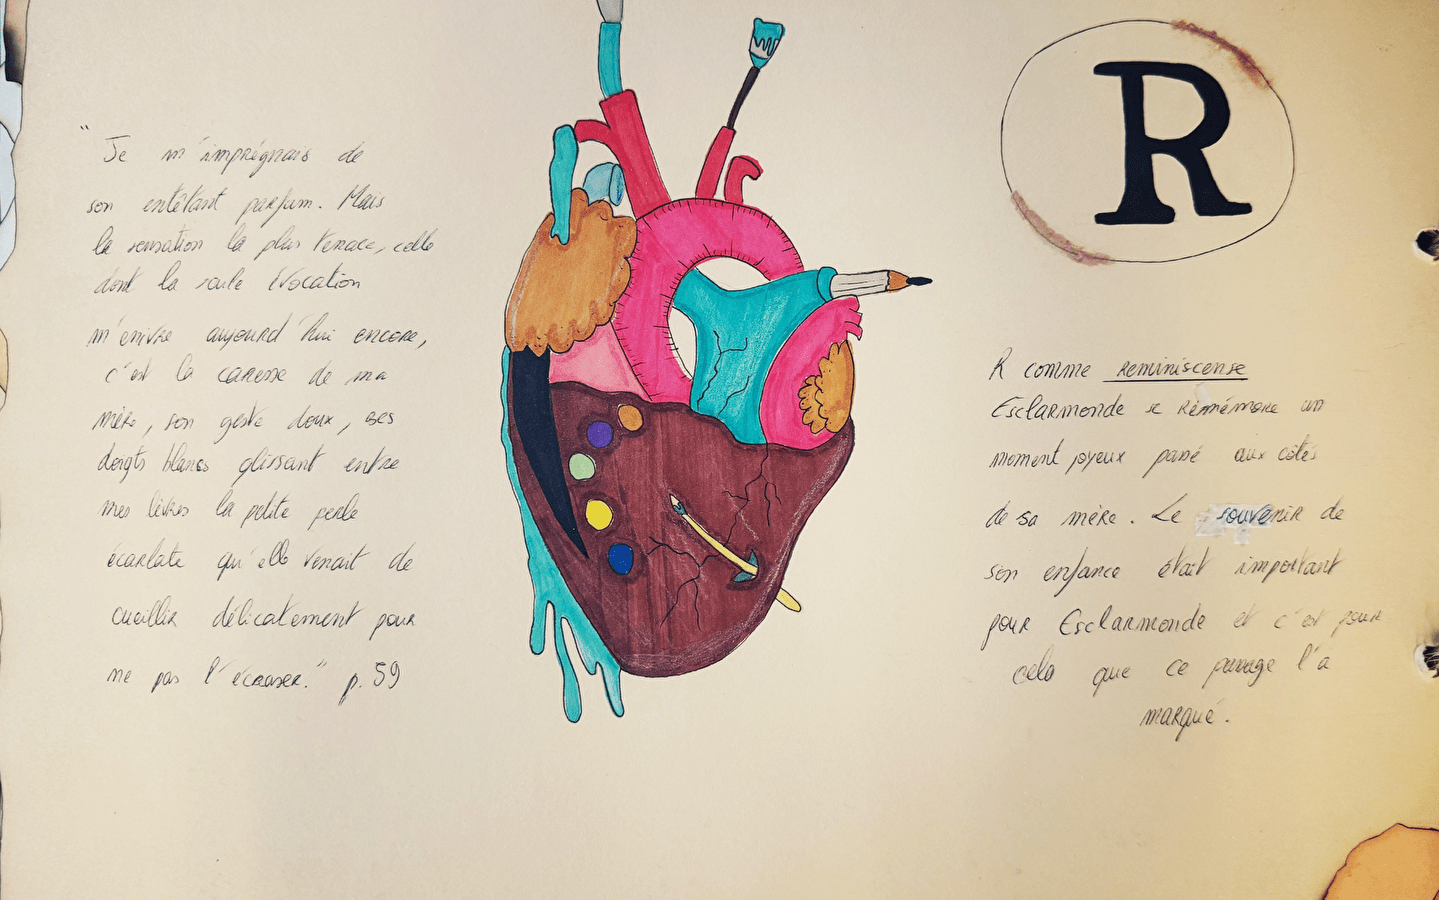 "Je m'imprégnais de
son entêtant parfum. Mais
la sensation la plus tenace, celle
dont la seule évocation
m'enivre aujourd'hui encore,
c'est la caresse de ma
mère, son geste doux, ses
doigts blancs glissant entre
mes lèvres la petite perle
écarlate qu'elle venait de
cueillir délicatement pour
ne pas l'écraser." p.59
R
R comme reminiscense
Esclarmonde se remémore un
moment joyeux passé aux côtés
de sa mère. Le souvenir de
son enfance était important
pour Esclarmonde et c'est pour
cela que ce passage l'a
marqué.